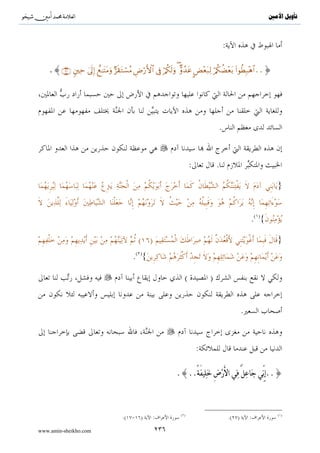 تأويل الأمين
العلامة محمد أمين شيخو
أما الهبوط في هذه الآية:
﴿..ٱهۡبِطُواْ بَعۡضُكُمۡ لِبَعۡضٍ عَدُوّٞۖ وَلَكُمۡ فِي ٱلۡأَرۡضِ مُسۡتَقَرّٞ وَمَتَٰعٌ إِلَىٰ حِينٖ﴾.
فهو إخراجهم من الحالة التي كانوا عليها وتواجدهم في الأرض إلى حين حسبما أراد ربُّ العالمين،
وللغاية التي خلقنا من أجلها ومن هذه الآيات يتبيَّن لنا بأن الجنَّة يختلف مفهومها عن المفهوم
السائد لدى معظم الناس.
إن هذه الطريقة التي أخرج الله بها سيدنا آدم ﷺ هي موعظة لنكون حذرين من هذا العدو الماكر
الخبيث والمتكبِّر الملازم لنا. قال تعالى:
{يَابَنِي آدَمَ لاَ يَفْتِنَنَّكُمُ الشَّيْطَانُ كَمَا أَخْرَجَ أَبَوَيْكُمْ مِنَ الْجَنَّةِ يَنْزِعُ عَنْهُمَا لِبَاسَهُمَا لِيُرِيَهُمَا
سَوْءَاتِهِمَا إِنَّهُ يَرَاكُمْ هُوَ وَقَبِيلُهُ مِنْ حَيْثُ لاَ تَرَوْنَهُمْ إِنَّا جَعَلْنَا الشَّيَاطِينَ أَوْلِيَاءَ لِلَّذِينَ لاَ
يُؤْمِنُونَ}(١).
{قَالَ فَبِمَا أَغْوَيْتَنِي لأَقْعُدَنَّ لَهُمْ صِرَاطَكَ الْمُسْتَقِيمَ (١٦) ثُمَّ لآتِيَنَّهُمْ مِنْ بَيْنِ أَيْدِيهِمْ وَمِنْ خَلْفِهِمْ
وَعَنْ أَيْمَانِهِمْ وَعَنْ شَمَائِلِهِمْ وَلاَ تَجِدُ أَكْثَرَهُمْ شَاكِرِينَ}(٢).
ولكي لا نقع بنفس الشرك ( المصيدة ) الذي حاول إيقاع أبينا آدم ﷺ فيه وفشل، رتَّب لنا تعالى
إخراجه على هذه الطريقة لنكون حذرين وعلى بينة من عدونا إبليس وألاعيبه لئلا نكون من
أصحاب السعير.
وهذه ناحية من مغزى إخراج سيدنا آدم ﷺ من الجنَّة، فالله سبحانه وتعالى قضى بإخراجنا إلى
الدنيا من قبل عندما قال للملائكة:
﴿..إِنِّي جَاعِلٌ فِي الأَرْضِ خَلِيفَةً..﴾.
(١) سورة الأعراف: الآية (٢٧).
(٢) سورة الأعراف: الآية (١٦-١٧).
٢٣٦
www.amin-sheikho.com